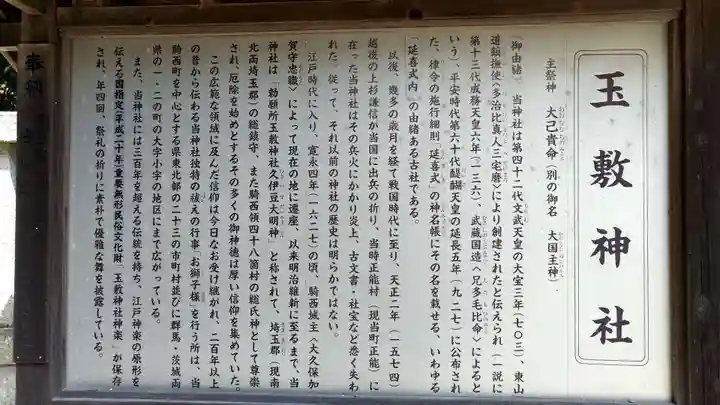 玉敷神社
主祭神　大己貴命（別の御名　大国主神）
『御由緒』　当神社は第四十二代文武天皇の大宝三年（七〇三）、東山
道鎮撫使〈多治比真人三宅麿〉により創建されたと伝えられ（一説に
第十三代成務天皇六年（一三六）、武蔵国造〈兄多毛比命〉によると
いう）、平安時代第六十代醍醐天皇の延長五年（九二七）に公布され
た、律令の施行細則『延喜式』の神名帳にその名を載せる、いわゆる
「延喜式内」の由緒ある古社である。
以後、幾多の歳月を経て戦国時代に至り、天正二年（一五七四）
越後の上杉謙信が当国に出兵の折り、当時正能村（現当町正能）に
在った当神社はその兵火にかかり炎上、古文書・社宝など悉く失わ
れた。従って、それ以前の神社の歴史は明らかではない。
江戸時代に入り、寛永四年（一六二七）の頃、騎西城主〈大久保加
賀守忠職〉によって現在の地に遷座、以来明治維新に至るまで、当
神社は「勅願所玉敷神社久伊豆大明神」と称されて、埼玉郡（現南
北両埼玉郡）の総鎮守、また騎西領四十八箇村の総氏神として尊崇
され、厄除を始めとするその多くの御神徳は厚い信仰を集めていた。
この広範な領域に及んだ信仰は今日なお受け継がれ、二百年以上
の昔から伝わる当神社独特の祓えの行事「お獅子様」を行う所は、当
騎西町を中心とする県東北部の二十三の市町村並びに群馬・茨城両
県の一・二の町の大字小字の地区にまで広がっている。
また、当神社には三百年を超える伝統を持ち、江戸神楽の原形を
伝える国指定（平成二十年）重要無形民俗文化財「玉敷神社神楽」が保存
され、年四回、祭礼の折りに素朴で優雅な舞を披露している。
奉納